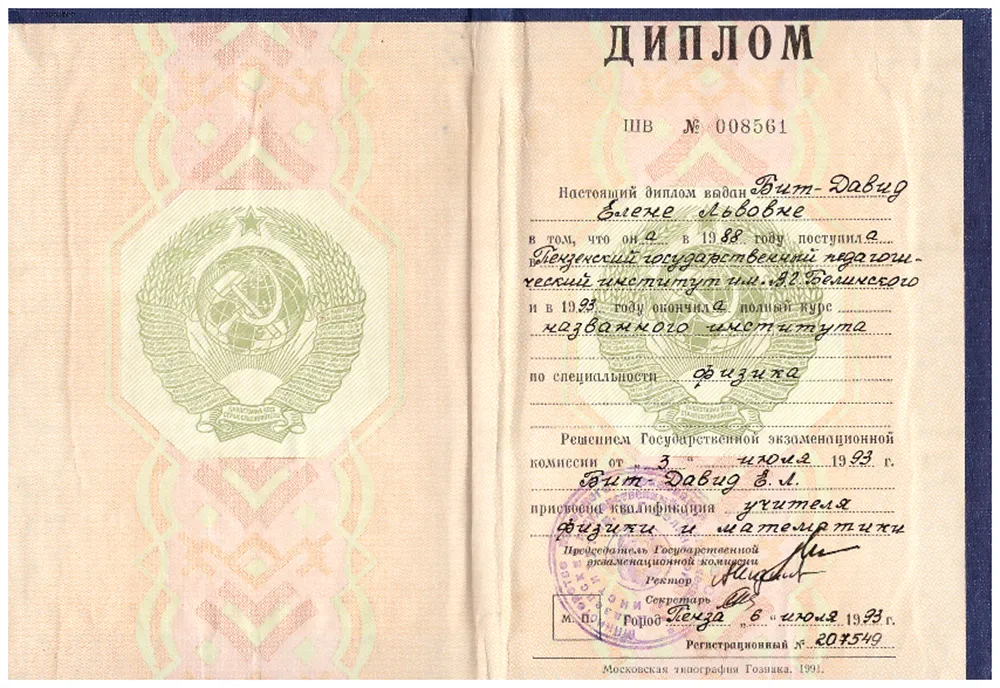 ДИПЛОМ
ШВ № 008561
Настоящий диплом выдан Бит-Давид
Елене Львовне
в том, что он а в 1988 году поступил а
в Пензенский государственный педагоги-
ческий институт им. В.Г. Белинского
и в 1993 году окончил а полный курс
названного института
по специальности физика
Решением Государственной экзаменационной
комиссии от „ 3 “ июля 1993 г.
Бит-Давид Е. Л.
присвоена квалификация учителя
физики и математики
Председатель Государственной
экзаменационной комиссии
Ректор
Секретарь
М. П. Город Пенза „ 6 “ июля 1993 г.
Регистрационный № 207549
Московская типография Гознака. 1991.